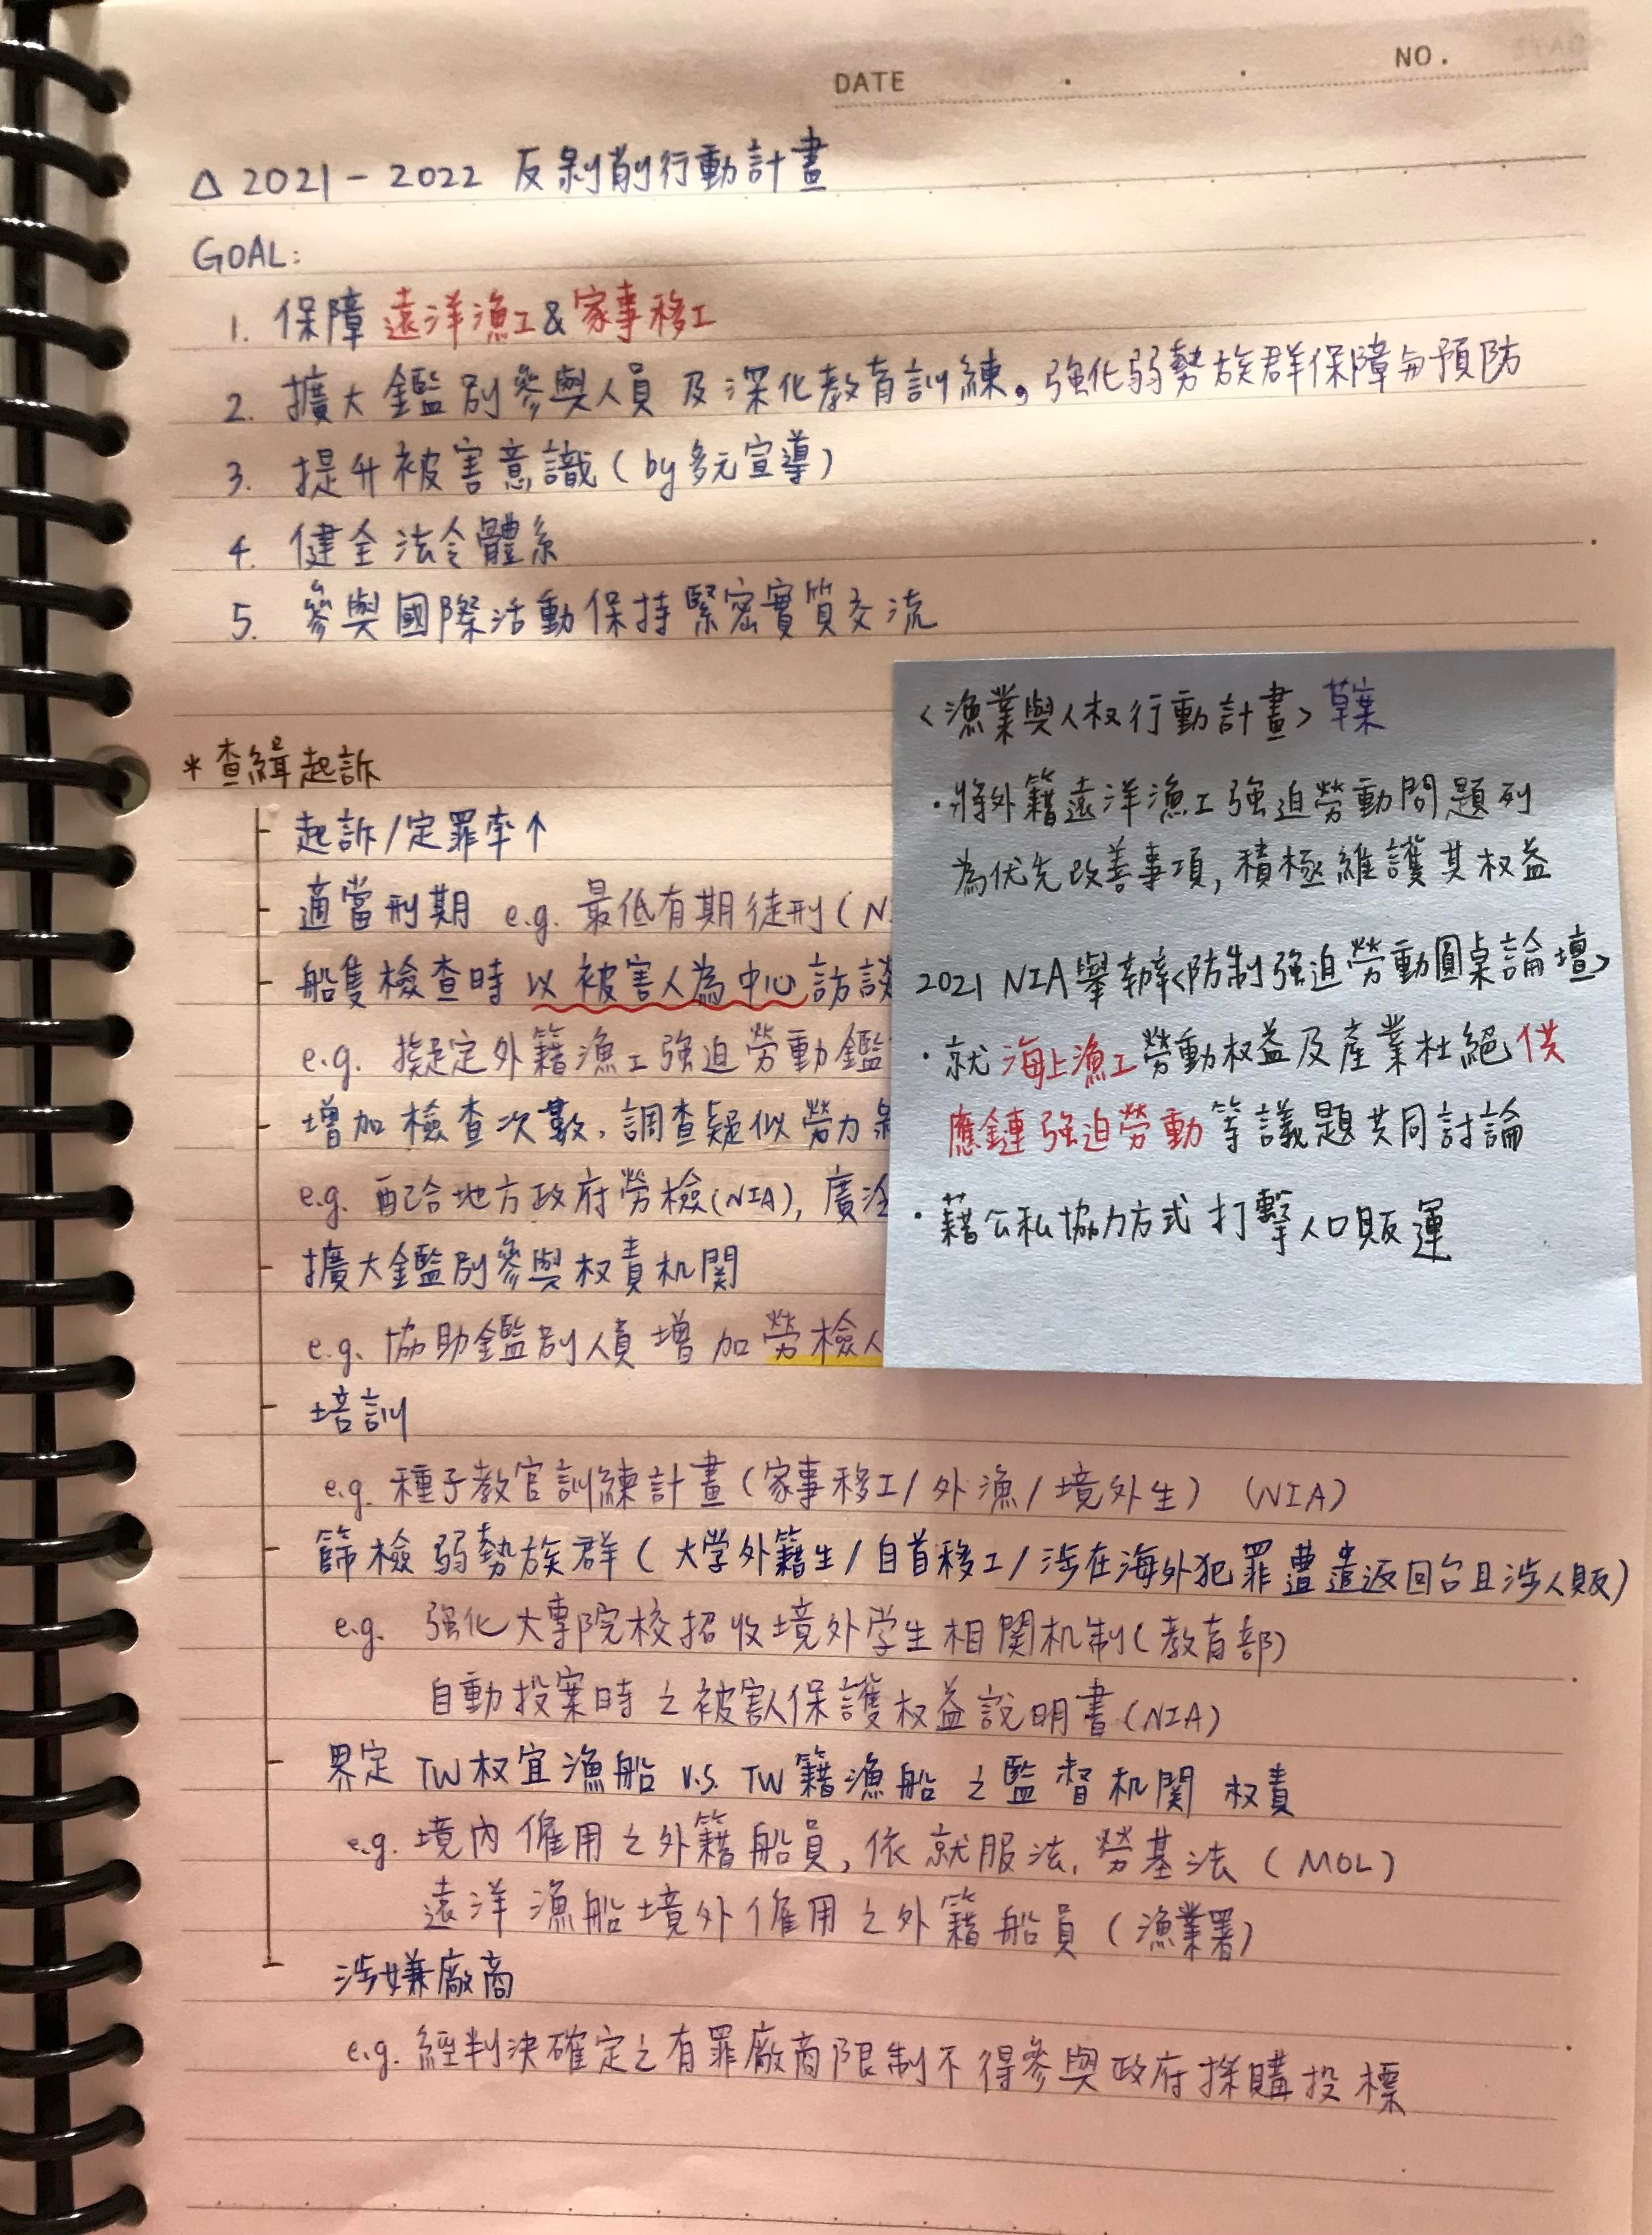 DATE . . NO.
△ 2021 - 2022 反剝削行動計畫
GOAL:
1. 保障 遠洋漁工 & 家事移工
2. 擴大鑑別參與人員及深化教育訓練。強化弱勢族群保障与預防
3. 提升被害意識(by多元宣導)
4. 健全法令體系
5. 參與國際活動保持緊密實質交流
*查緝起訴
起訴/定罪率↑
適當刑期 e.g. 最低有期徒刑(N
船隻檢查時 以被害人為中心訪談
e.g. 擬定外籍漁工強迫勞動鑑
增加檢查次數,調查疑似勞力
e.g. 配合地方政府勞檢(NIA),廣
擴大鑑別參與权責机関
e.g. 協助鑑別人員增加勞檢人
培訓
e.g. 種子教官訓練計畫(家事移工/外漁/境外生) (NIA)
篩檢弱勢族群(大学外籍生/自首移工/涉在海外犯罪遭遣返回台且涉人販)
e.g. 強化大專院校招收境外学生相関机制(教育部)
自動投案時之被害人保護权益說明書(NIA)
界定 TW权宜漁船 v.s. TW籍漁船之監督机関权責
e.g. 境內僱用之外籍船員,依就服法,勞基法(MOL)
遠洋漁船境外僱用之外籍船員(漁業署)
涉嫌廠商
e.g. 經判決確定之有罪廠商限制不得參與政府採購投標
<漁業與人权行動計畫>草案
·將外籍遠洋漁工強迫勞動問題列
為优先改善事項,積極維護其权益
2021 NIA舉辦<防制強迫勞動圓桌論壇>
·就海上漁工勞動权益及產業杜絕供
應鏈強迫勞動等議題共同討論
·藉公私協力方式打擊人口販運